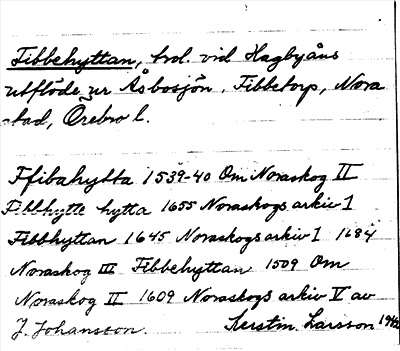 Fibbehyttan, trol. vid Hagbyåns
utflöde ur Åsbosjön. Fibbetorp, Nora
stad, Örebro l.
Ffibahytta 1539-40 Om Noraskog II
Fibbhytte hytta 1655 Noraskogs arkiv I
Fibbhyttan 1645 Noraskogs arkiv I 1684
Noraskog III Fibbehyttan 1509 Om
Noraskog II 1609 Noraskogs arkiv V av
J. Johansson. Kerstin Larsson